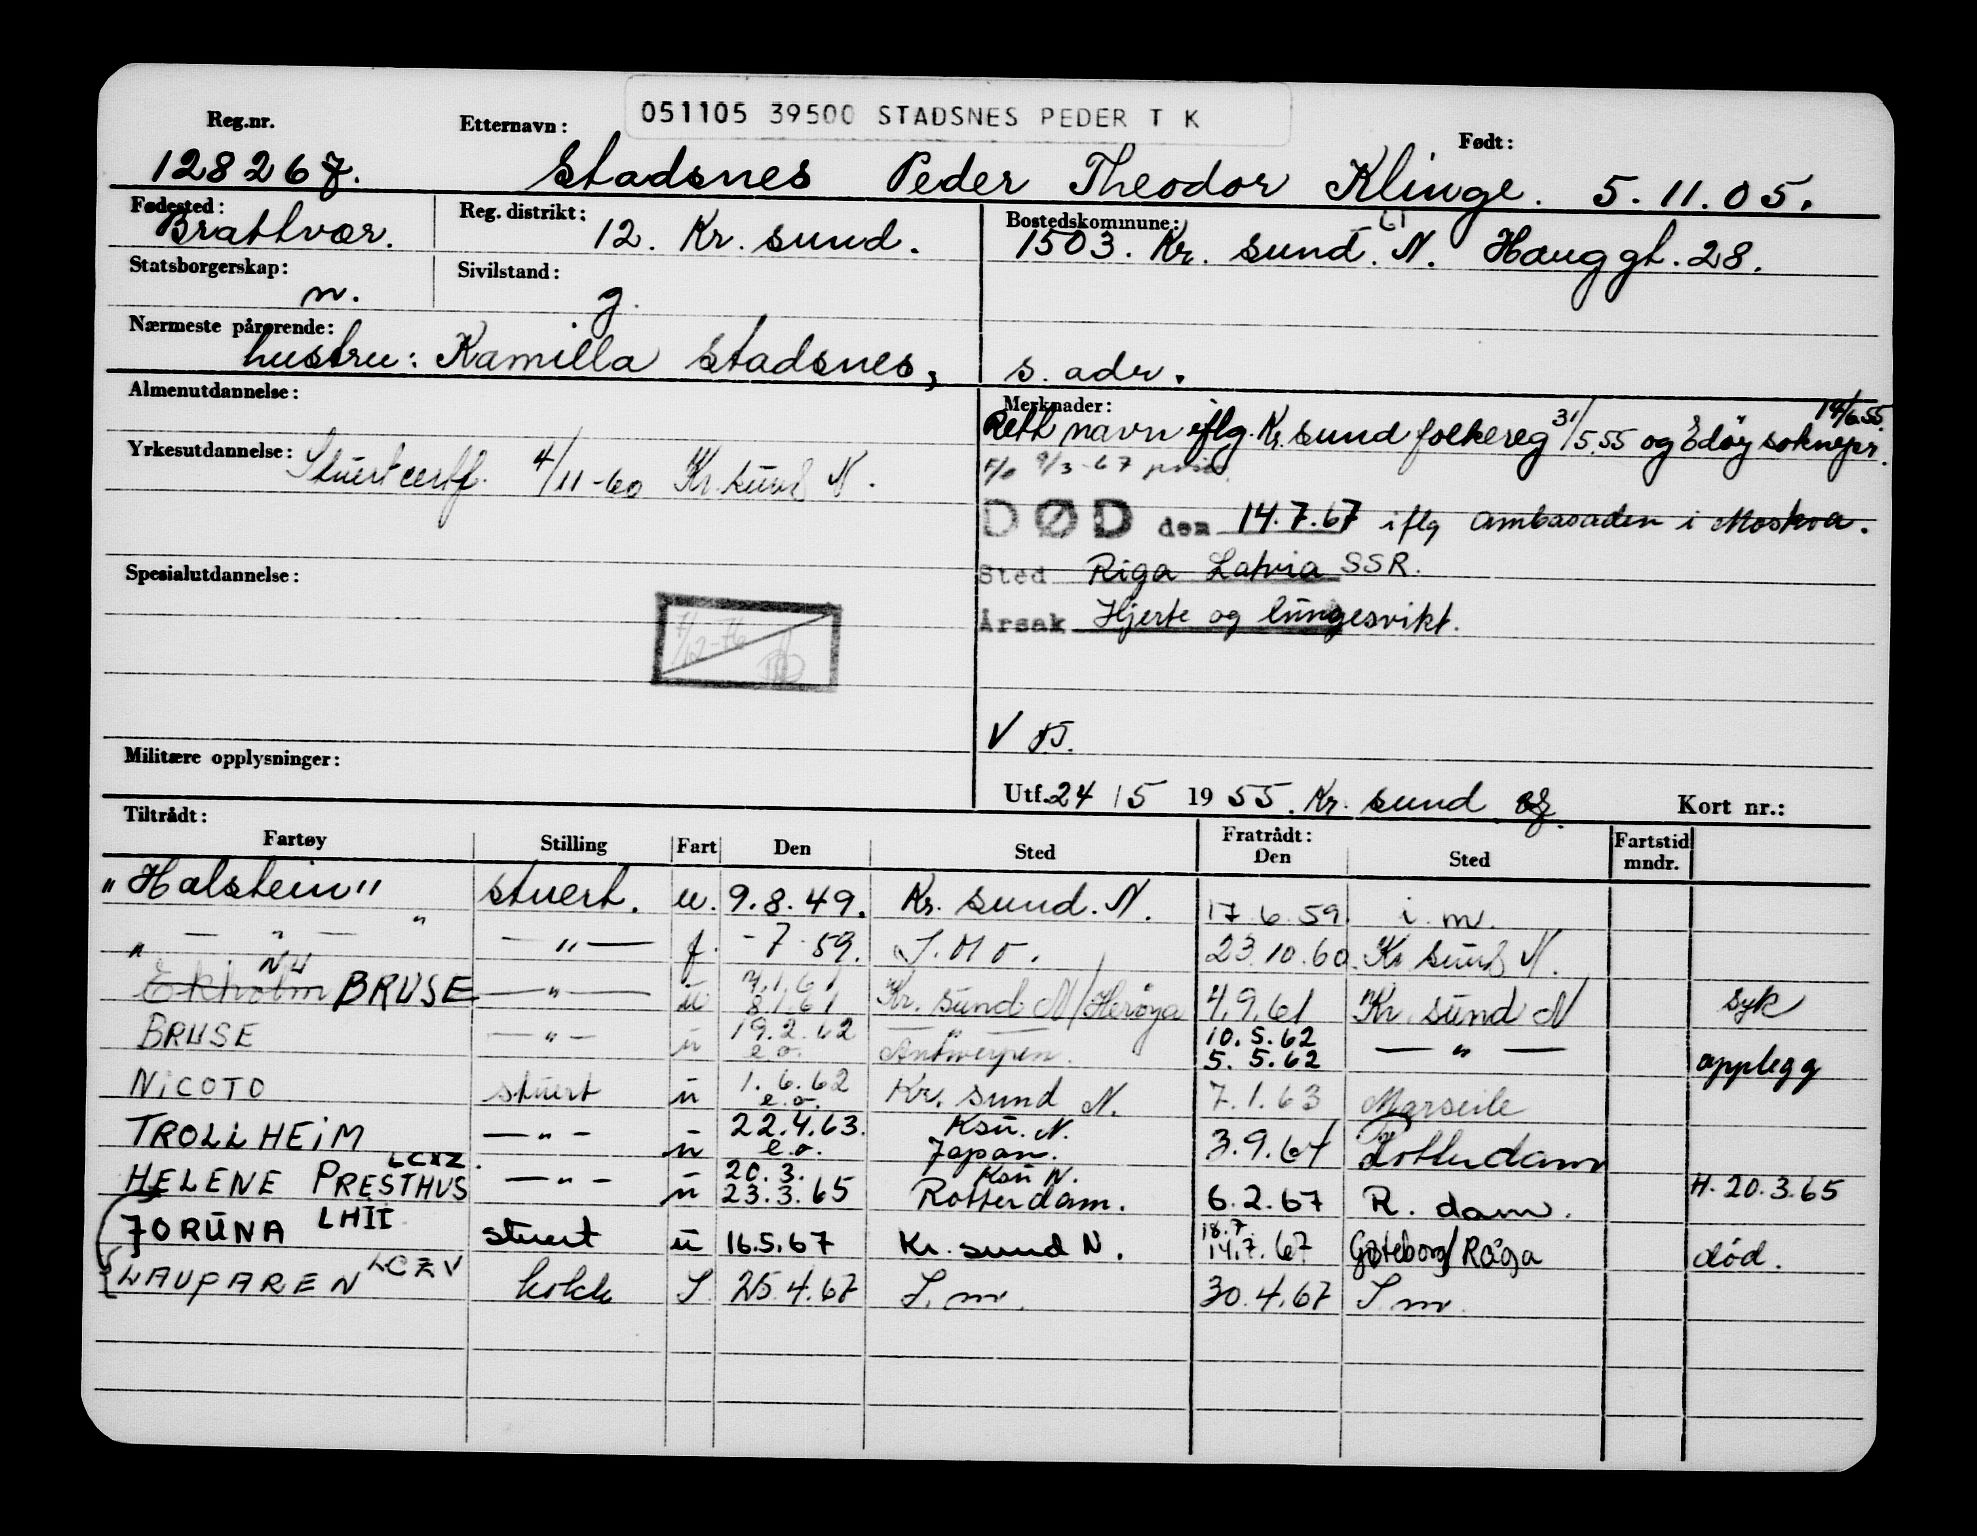 051105 39500 STADSNES PEDER T K
Reg.nr. Etternavn: Født:
128267. Stadsnes Peder Theodor Klinge. 5.11.05.
Fødested: Reg. distrikt: Bostedskommune:
Brattvær. 12. Kr. sund. 1503. Kr. sund. N. Hauggt. 28.
Statsborgerskap: Sivilstand:
n. g.
Nærmeste pårørende:
hustru: Kamilla Stadsnes, s. adr.
Almenutdannelse: Merknader: 14/6.55.
Rett navn iflg. Kr. sund folkereg 31/5.55 og Edøy soknepr.
Yrkesutdannelse: Stuertcertf. 4/11-60 Kr. sund N.
F/o 9/3-67
DØD den 14.7.67 iflg ambasaden i Moskva.
Spesialutdannelse: Sted Riga Latvia SSR.
Årsak Hjerte og lungesvikt.
1/12-76
V
Militære opplysninger:
Utf. 24/5 1955. Kr. sund Kort nr.:
Tiltrådt: Fratrådt: Fartstid
Fartøy Stilling Fart Den Sted Den Sted mndr.
"Halstein" stuert. u. 9.8.49. Kr. sund. N. 17.6.59. i. m.
" — " — " — " — f. -7-59. 23.10.60. Kr sund N.
NU 7.1.61
Ekholm BRUSE — " — u 8.1.61 Kr. sund N/Herøya 4.9.61 Kr. sund N syk
19.2.62 — " — 10.5.62
BRUSE — " — u e.o. Antwerpen. 5.5.62 — " — opplegg
NICOTO stuert u 1.6.62 e.o. Kr. sund N. 7.1.63 Marseile
22.4.63. Ksu. N.
TROLLHEIM — " — u e.o. Japan. 3.9.64 Rotterdam
LCXZ. 20.3. Ksu N.
HELENE PRESTHUS — " — u 23.3.65 Rotterdam. 6.2.67 R. dam. H. 20.3.65
LHII 18.7.
JORUNA stuert u 16.5.67 Kr. sund N. 14.7.67 Gøteborg/Riga død.
LAUPAREN kokk S 25.4.67 S. m. 30.4.67 S. m.